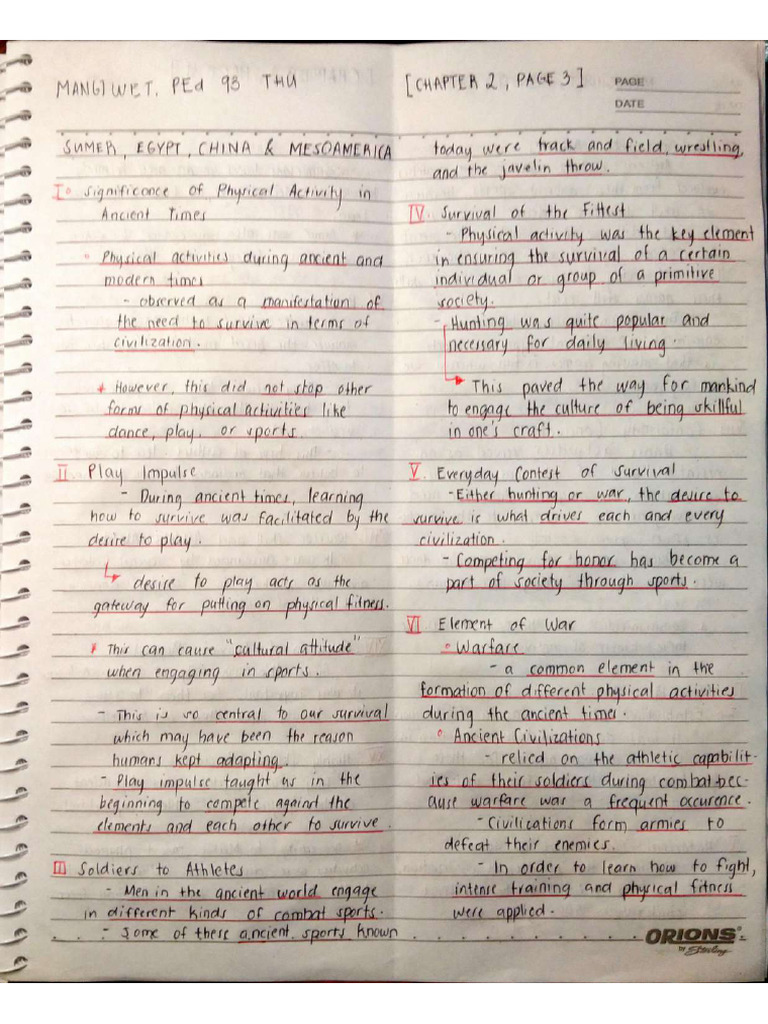 MANGIWET. PEd 93 THU
[CHAPTER 2, PAGE 3]
PAGE
DATE
SUMER, EGYPT, CHINA & MESOAMERICA
I Significance of Physical Activity in
Ancient Times
Physical activities during ancient and
modern times
- observed as a manifestation of
the need to survive in terms of
civilization.
* However, this did not stop other
forms of physical activities like
dance, play, or sports.
II Play Impulse
- During ancient times, learning
how to survive was facilitated by the
desire to play.
desire to play acts as the
gateway for putting on physical fitness.
* This can cause "cultural attitude"
when engaging in sports.
- This is so central to our survival
which may have been the reason
humans kept adapting.
- Play impulse taught us in the
beginning to compete against the
elements and each other to survive.
III Soldiers to Athletes
- Men in the ancient world engage
in different kinds of combat sports.
- Some of these ancient sports known
today were track and field, wrestling,
and the javelin throw.
IV Survival of the Fittest
- Physical activity was the key element
in ensuring the survival of a certain
individual or group of a primitive
society.
- Hunting was quite popular and
necessary for daily living.
This paved the way for mankind
to engage the culture of being skillful
in one's craft.
V Everyday Contest of Survival
- Either hunting or war, the desire to
survive is what drives each and every
civilization.
- Competing for honor has become a
part of society through sports.
VI Element of War
Warfare
- a common element in the
formation of different physical activities
during the ancient times.
Ancient Civilizations
- relied on the athletic capabilit-
ies of their soldiers during combat bec-
ause warfare was a frequent occurence.
- Civilications form armies to
defeat their enemies.
- In order to learn how to fight,
intense training and physical fitness
were applied.
ORIONS
by Sterling